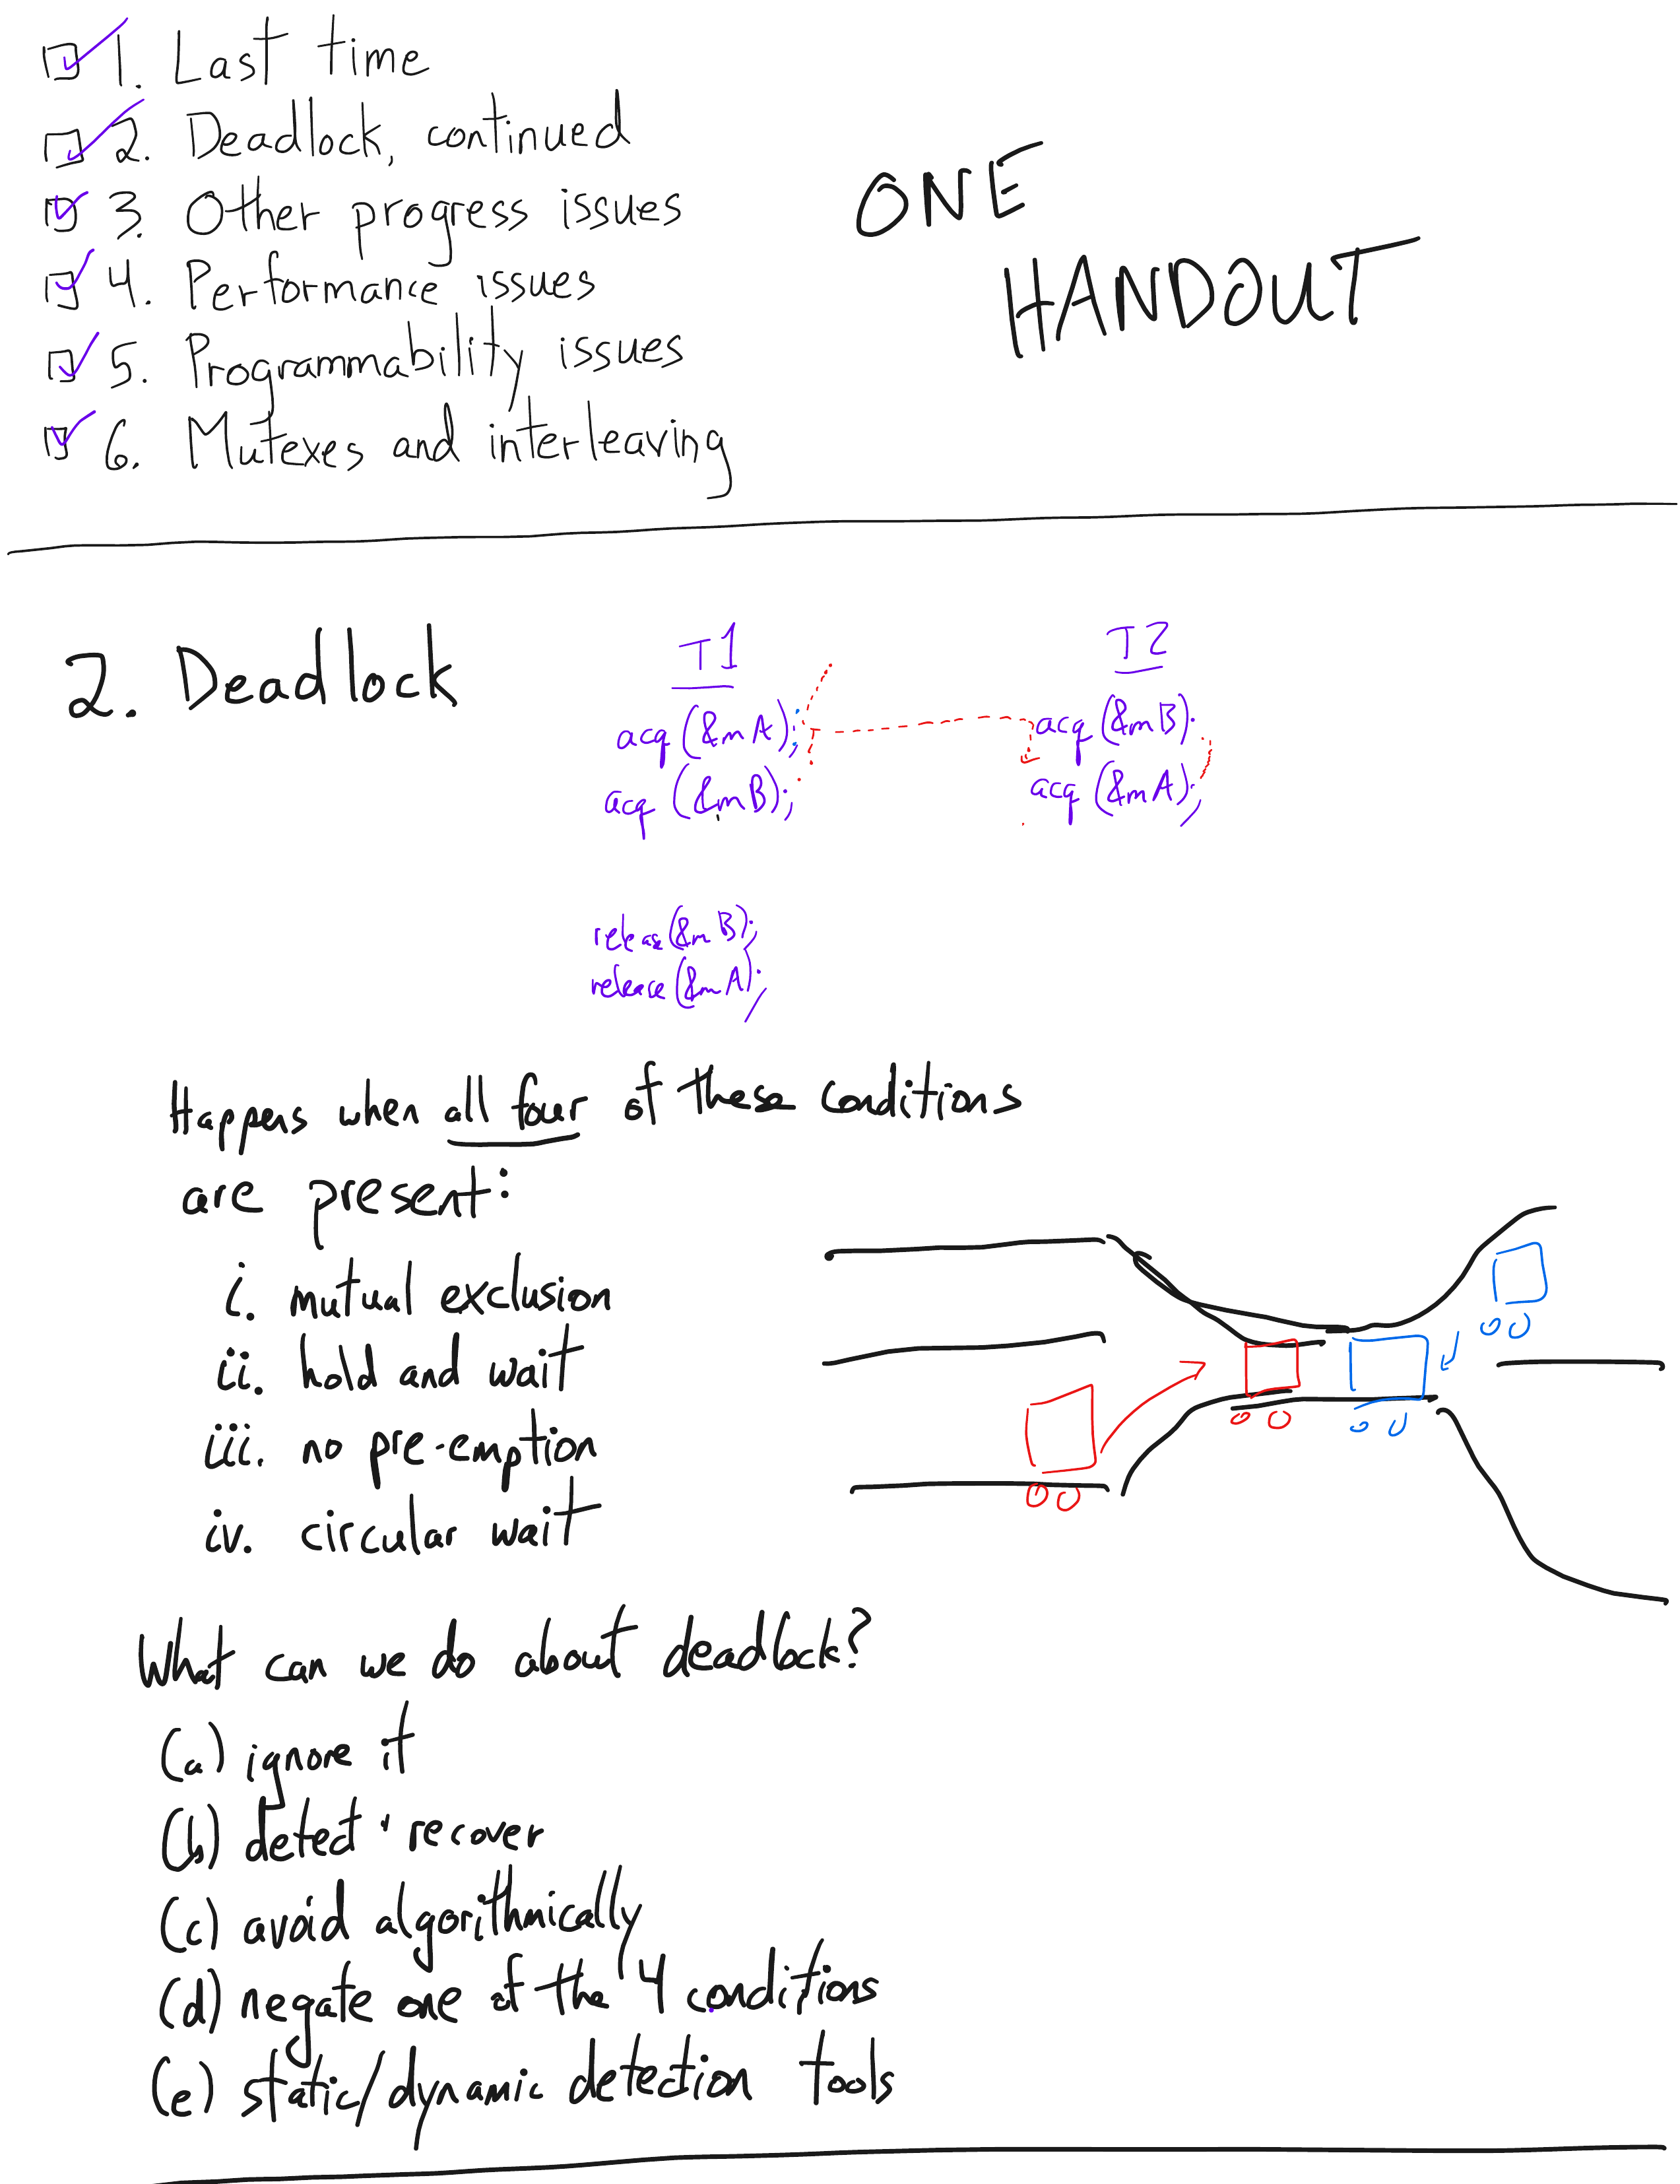 1. Last time
2. Deadlock, continued
3. Other progress issues
4. Performance issues
5. Programmability issues
6. Mutexes and interleaving
ONE
HANDOUT
2. Deadlock
T1
acq (&mA);
acq (&mB);
release(&mB);
release(&mA);
T2
acq (&mB);
acq (&mA);
Happens when all four of these conditions
are present:
i. mutual exclusion
ii. hold and wait
iii. no pre-emption
iv. circular wait
What can we do about deadlock?
(a) ignore it
(b) detect + recover
(c) avoid algorithmically
(d) negate one of the 4 conditions
(e) static/dynamic detection tools